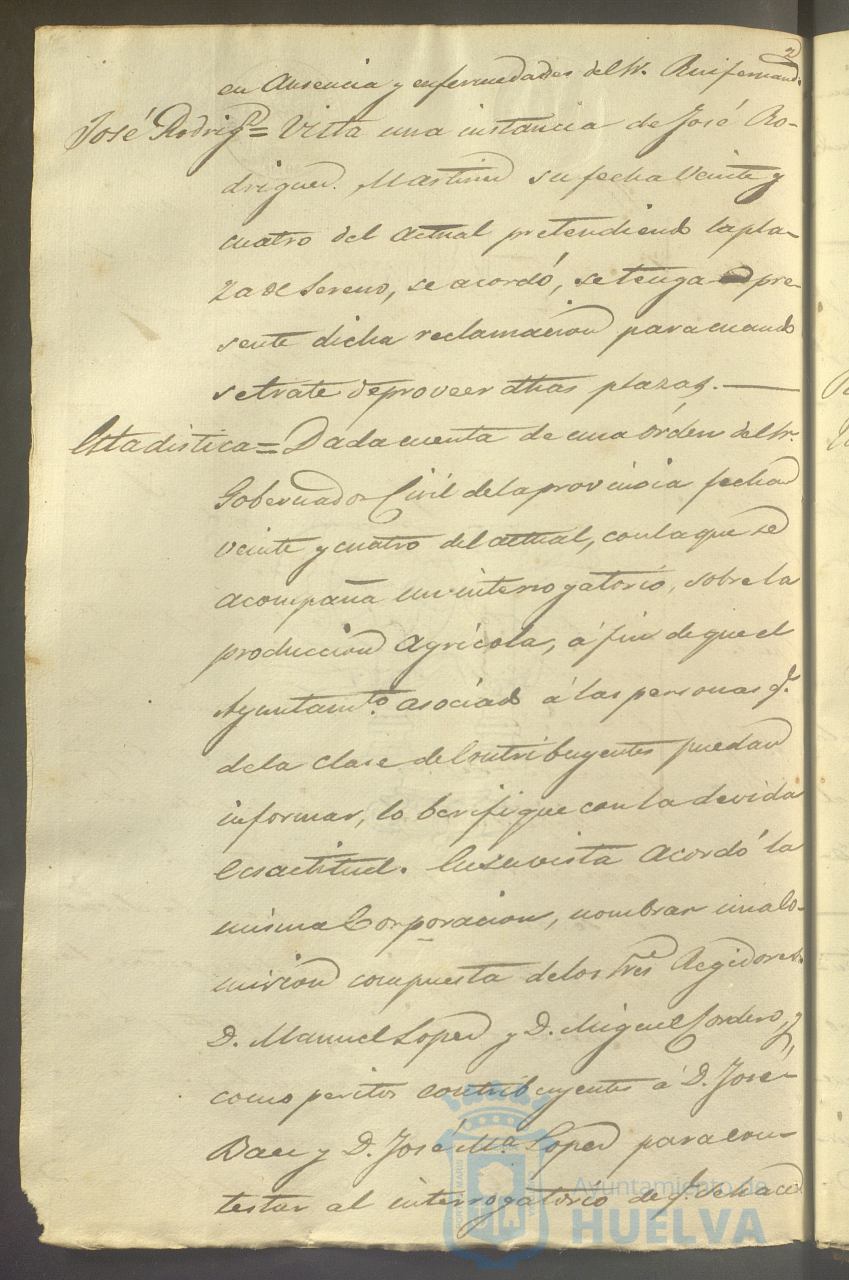 2
en Ausencia y enfermedades del Sr. Ruifernand.
José Rodrigz = Vista una instancia de José Ro-
driguez Martinez su fecha Veinte y
cuatro del actual pretendiendo la pla-
za de Sereno, se acordó, se tenga pre-
sente dicha reclamacion para cuando
se trate de proveer dhas plazas. —
Estadistica = Dada cuenta de una órden del Sr.
Gobernador Civil de la provincia fecha
veinte y cuatro del actual, con la que se
acompaña un interrogatorio, sobre la
produccion Agricola, á fin de que el
Ayuntamto. asociado á las personas q.
de la clase de Contribuyentes puedan
informar, lo berifique con la devida
Ecsactitud. En su vista Acordó la
misma Corporacion, nombrar una Co-
mision compuesta de los Sres Regidores
D. Manuel Lopez y D. Miguel Cordero, y
como peritos contribuyentes á D. José
Baez y D. José Ma. Lopez para con-
testar al interrogatorio de q. se hace
Ayuntamiento de
HUELVA